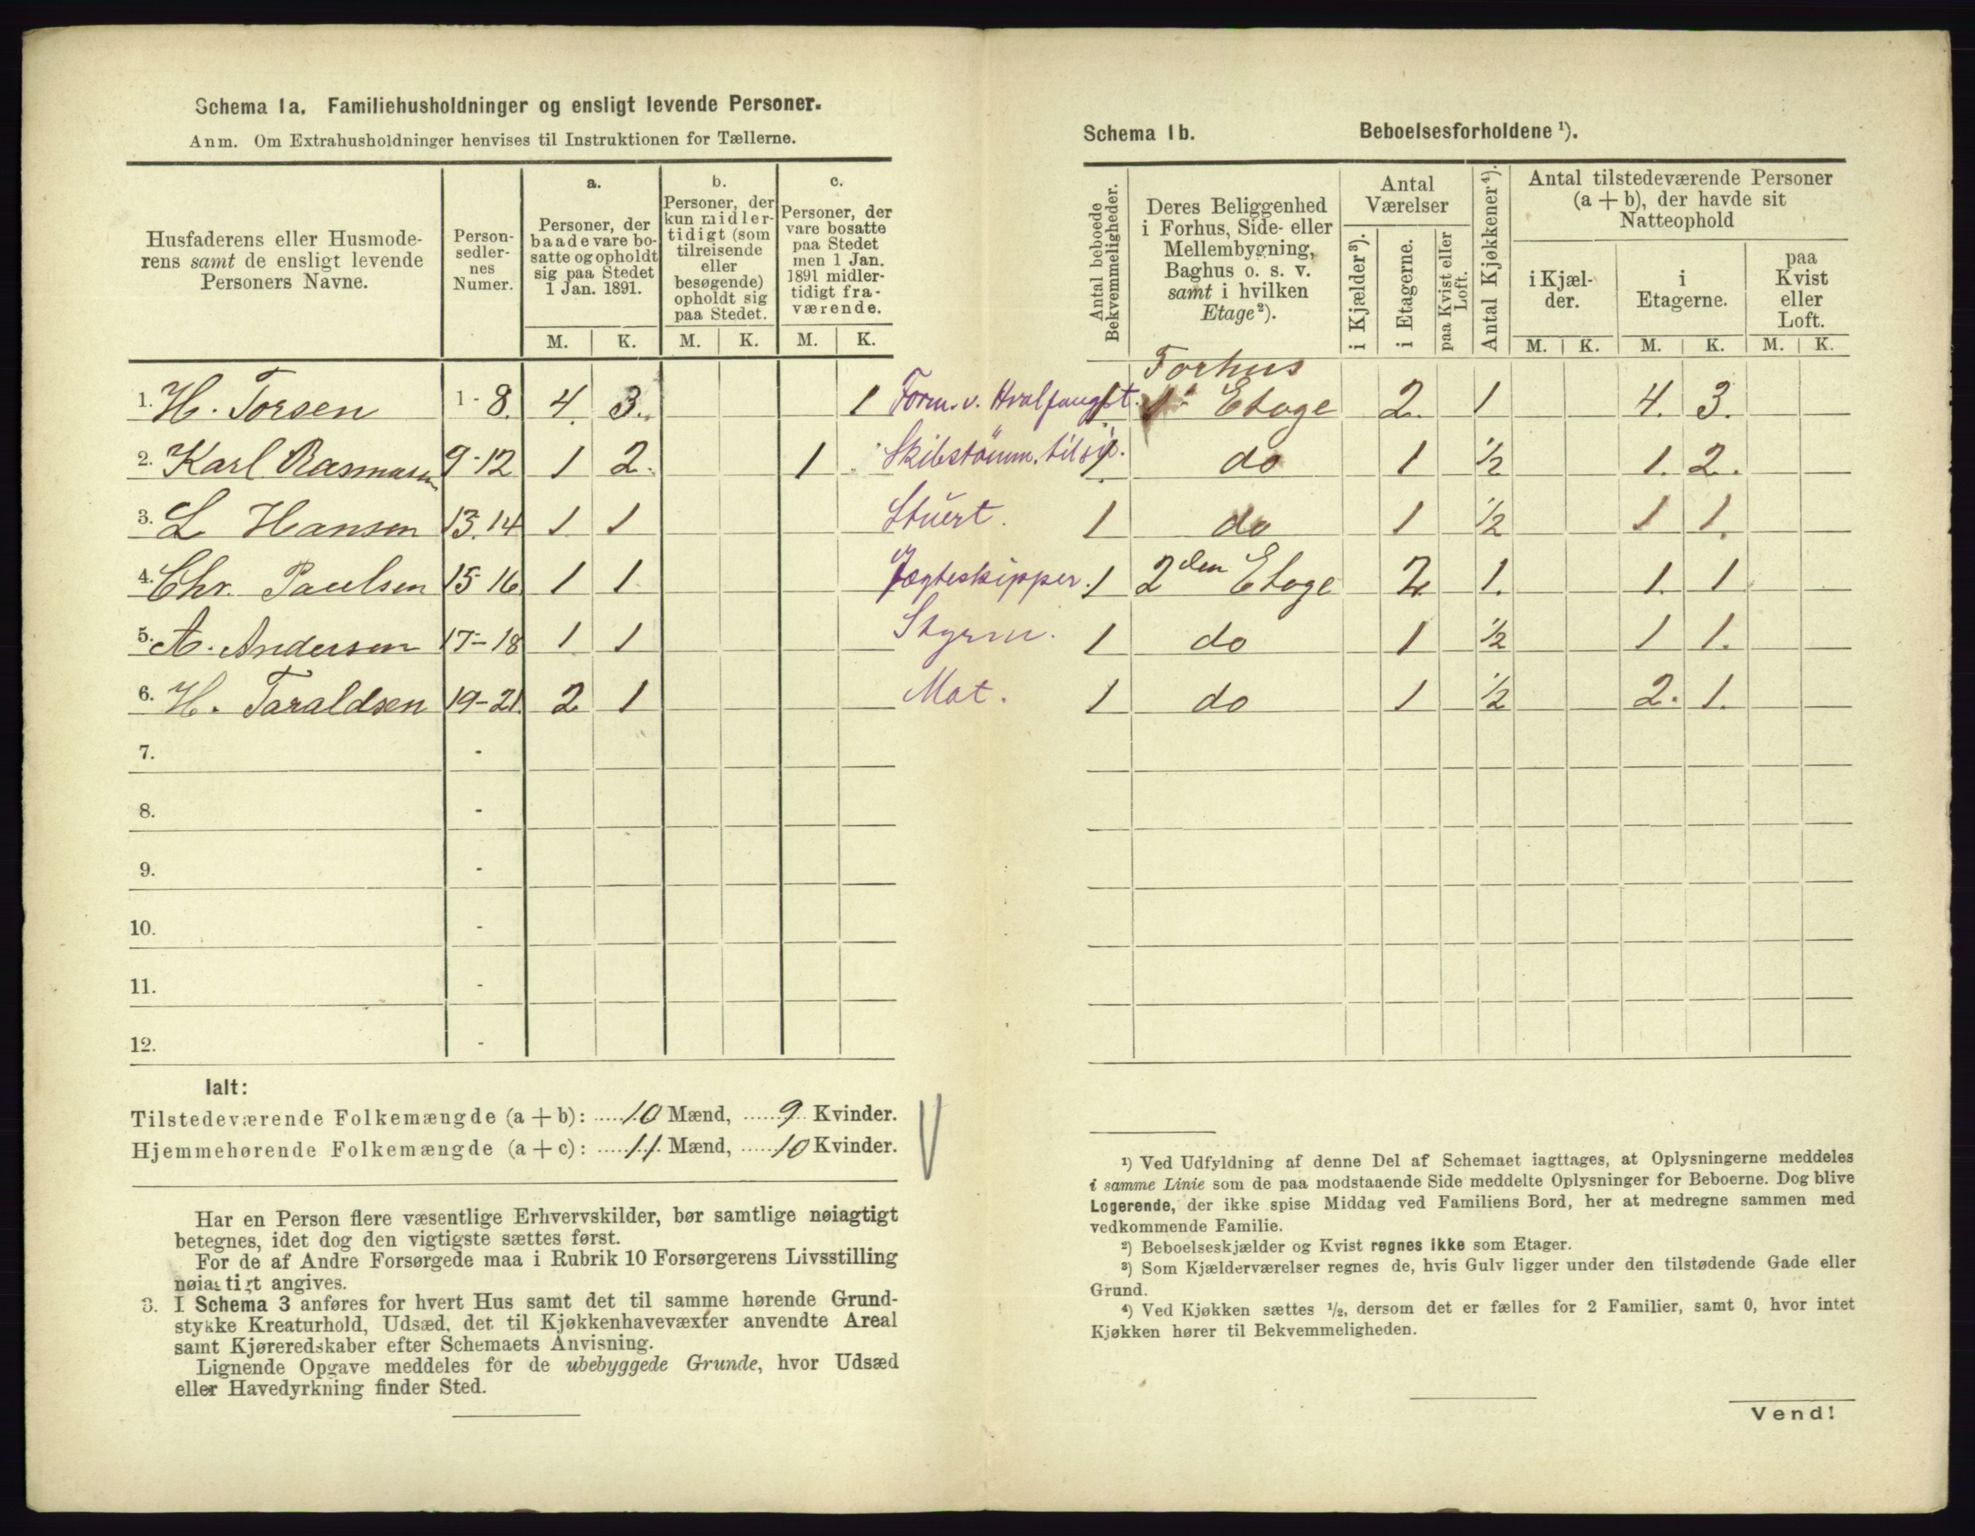 Schema 1a. Familiehusholdninger og ensligt levende Personer.
Anm. Om Extrahusholdninger henvises til Instruktionen for Tællerne.
Husfaderens eller Husmode-
rens samt de ensligt levende
Personers Navne.
Person-
sedler-
nes
Numer.
a.
Personer, der
baade vare bo-
satte og opholdt
sig paa Stedet
1 Jan. 1891.
b.
Personer, der
kun midler-
tidigt (som
tilreisende
eller
besøgende)
opholdt sig
paa Stedet.
c.
Personer, der
vare bosatte
paa Stedet
men 1 Jan.
1891 midler-
tidigt fra-
værende.
M. K. M. K. M. K.
1. H. Torsen 1-8. 4. 3. 1 Form. v. Hvalfangst.
2. Karl Rasmusen 9-12 1 2. 1 Skibstømm. tilsj.
3. L Hansen 13-14 1 1 Stuert.
4. Chr. Paulsen 15-16 1 1 Jægteskipper.
5. A. Andersen 17-18 1 1 Styrm.
6. H. Taraldsen 19-21. 2 1 Mat.
7. -
8. -
9. -
10. -
11. -
12. -
Ialt:
Tilstedeværende Folkemængde (a + b): 10 Mænd, 9 Kvinder.
Hjemmehørende Folkemængde (a + c): 11 Mænd, 10 Kvinder.
Har en Person flere væsentlige Erhvervskilder, bør samtlige nøiagtigt
betegnes, idet dog den vigtigste sættes først.
For de af Andre Forsørgede maa i Rubrik 10 Forsørgerens Livsstilling
nøiagtigt angives.
3. I Schema 3 anføres for hvert Hus samt det til samme hørende Grund-
stykke Kreaturhold, Udsæd, det til Kjøkkenhavevæxter anvendte Areal
samt Kjøreredskaber efter Schemaets Anvisning.
Lignende Opgave meddeles for de ubebyggede Grunde, hvor Udsæd
eller Havedyrkning finder Sted.
Schema 1b. Beboelsesforholdene ¹).
Antal beboede
Bekvemmeligheder.
Deres Beliggenhed
i Forhus, Side- eller
Mellembygning,
Baghus o. s. v.
samt i hvilken
Etage ²).
Antal
Værelser
i Kjælder ³).
i Etagerne.
paa Kvist eller
Loft.
Antal Kjøkkener ⁴).
Antal tilstedeværende Personer
(a + b), der havde sit
Natteophold
i Kjæl-
der.
i
Etagerne.
paa
Kvist
eller
Loft.
M. K. M. K. M. K.
Forhus
1 1ste Etage 2. 1 4. 3.
1 do 1 ½ 1. 2.
1 do 1 ½ 1 1.
1 2den Etage 2 1. 1. 1
1 do 1 ½ 1 1.
1 do 1 ½ 2. 1.
¹) Ved Udfyldning af denne Del af Schemaet iagttages, at Oplysningerne meddeles
i samme Linie som de paa modstaaende Side meddelte Oplysninger for Beboerne. Dog blive
Logerende, der ikke spise Middag ved Familiens Bord, her at medregne sammen med
vedkommende Familie.
²) Beboelseskjælder og Kvist regnes ikke som Etager.
³) Som Kjælderværelser regnes de, hvis Gulv ligger under den tilstødende Gade eller
Grund.
⁴) Ved Kjøkken sættes ½, dersom det er fælles for 2 Familier, samt 0, hvor intet
Kjøkken hører til Bekvemmeligheden.
Vend!